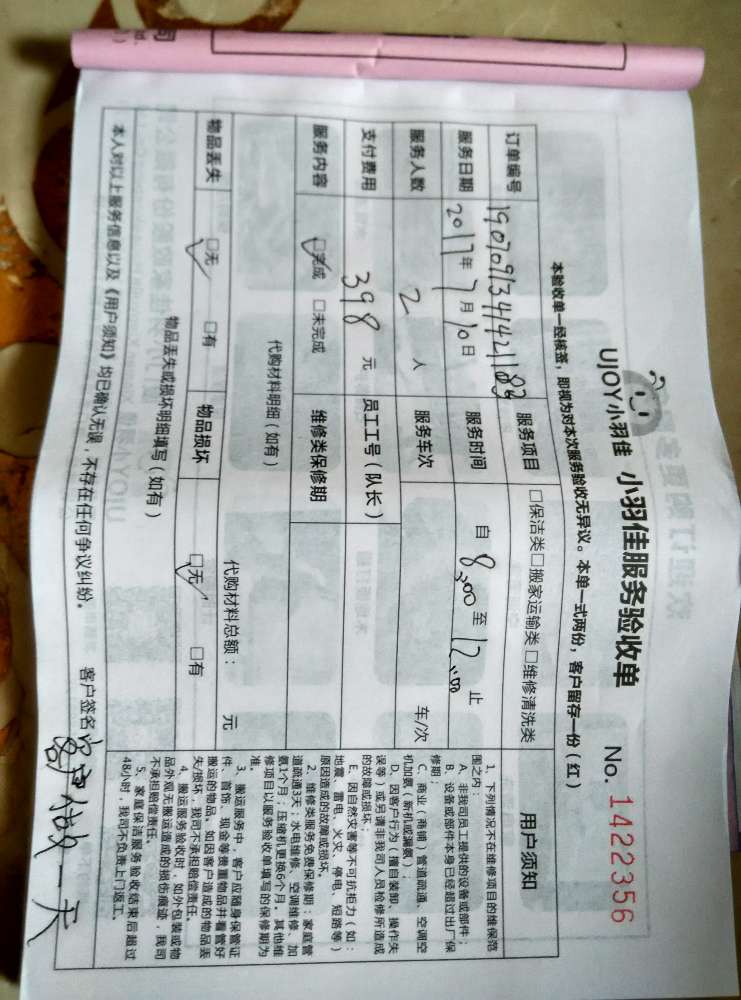 UJOY小羽佳 小羽佳服务验收单 No. 1422356
本验收单一经核签,即视为对本次服务验收无异议。本单一式两份,客户留存一份(红)
订单编号 190709134142183 服务项目 □保洁类□搬家运输类 □维修清洗类
服务日期 2017年7月10日 服务时间 自 8:00 至 12:00 止
服务人数 2 人 服务车次 车/次
支付费用 398 元 员工工号(队长)
服务内容 □完成 □未完成 维修类保修期
代购材料明细(如有) 代购材料总额: 元
物品丢失 □无 □有 物品损坏 □无 □有
物品丢失或损坏明细填写(如有)
本人对以上服务信息以及《用户须知》均已确认无误,不存在任何争议纠纷。 客户签名
客户做一天
用户须知
1、下列情况不在维修项目的维保范
围之内:
A、非我司员工提供的设备或部件;
B、设备或部件本身已经超过出厂保
修期;
C、商业(商铺)管道疏通、空调空
机加氨(新机或漏氨);
D、因客户行为(擅自装卸、操作失
误等)或另请非我司人员检修所造成
的故障或损坏;
E、因自然灾害等不可抗拒力(如:
地震、雷电、火灾、停电、短路等)
原因造成的故障或损坏。
2、维修类服务免费保修期:家庭管
道疏通3天;水电维修、空调维修、加
氨1个月;压缩机更换6个月。其他维
修项目以服务验收单填写的保修期为
准
3、搬运服务中,客户应随身保管证
件、首饰、现金等贵重物品并看管好
搬运的物品。如因客户造成的物品丢
失/损坏,我司不承担赔偿责任。
4、搬运服务验收时,如外包装或物
品外观无搬运造成的损伤痕迹,我司
不承担赔偿责任。
5、家庭保洁服务验收结束后超过
48小时,我司不负责上门返工。